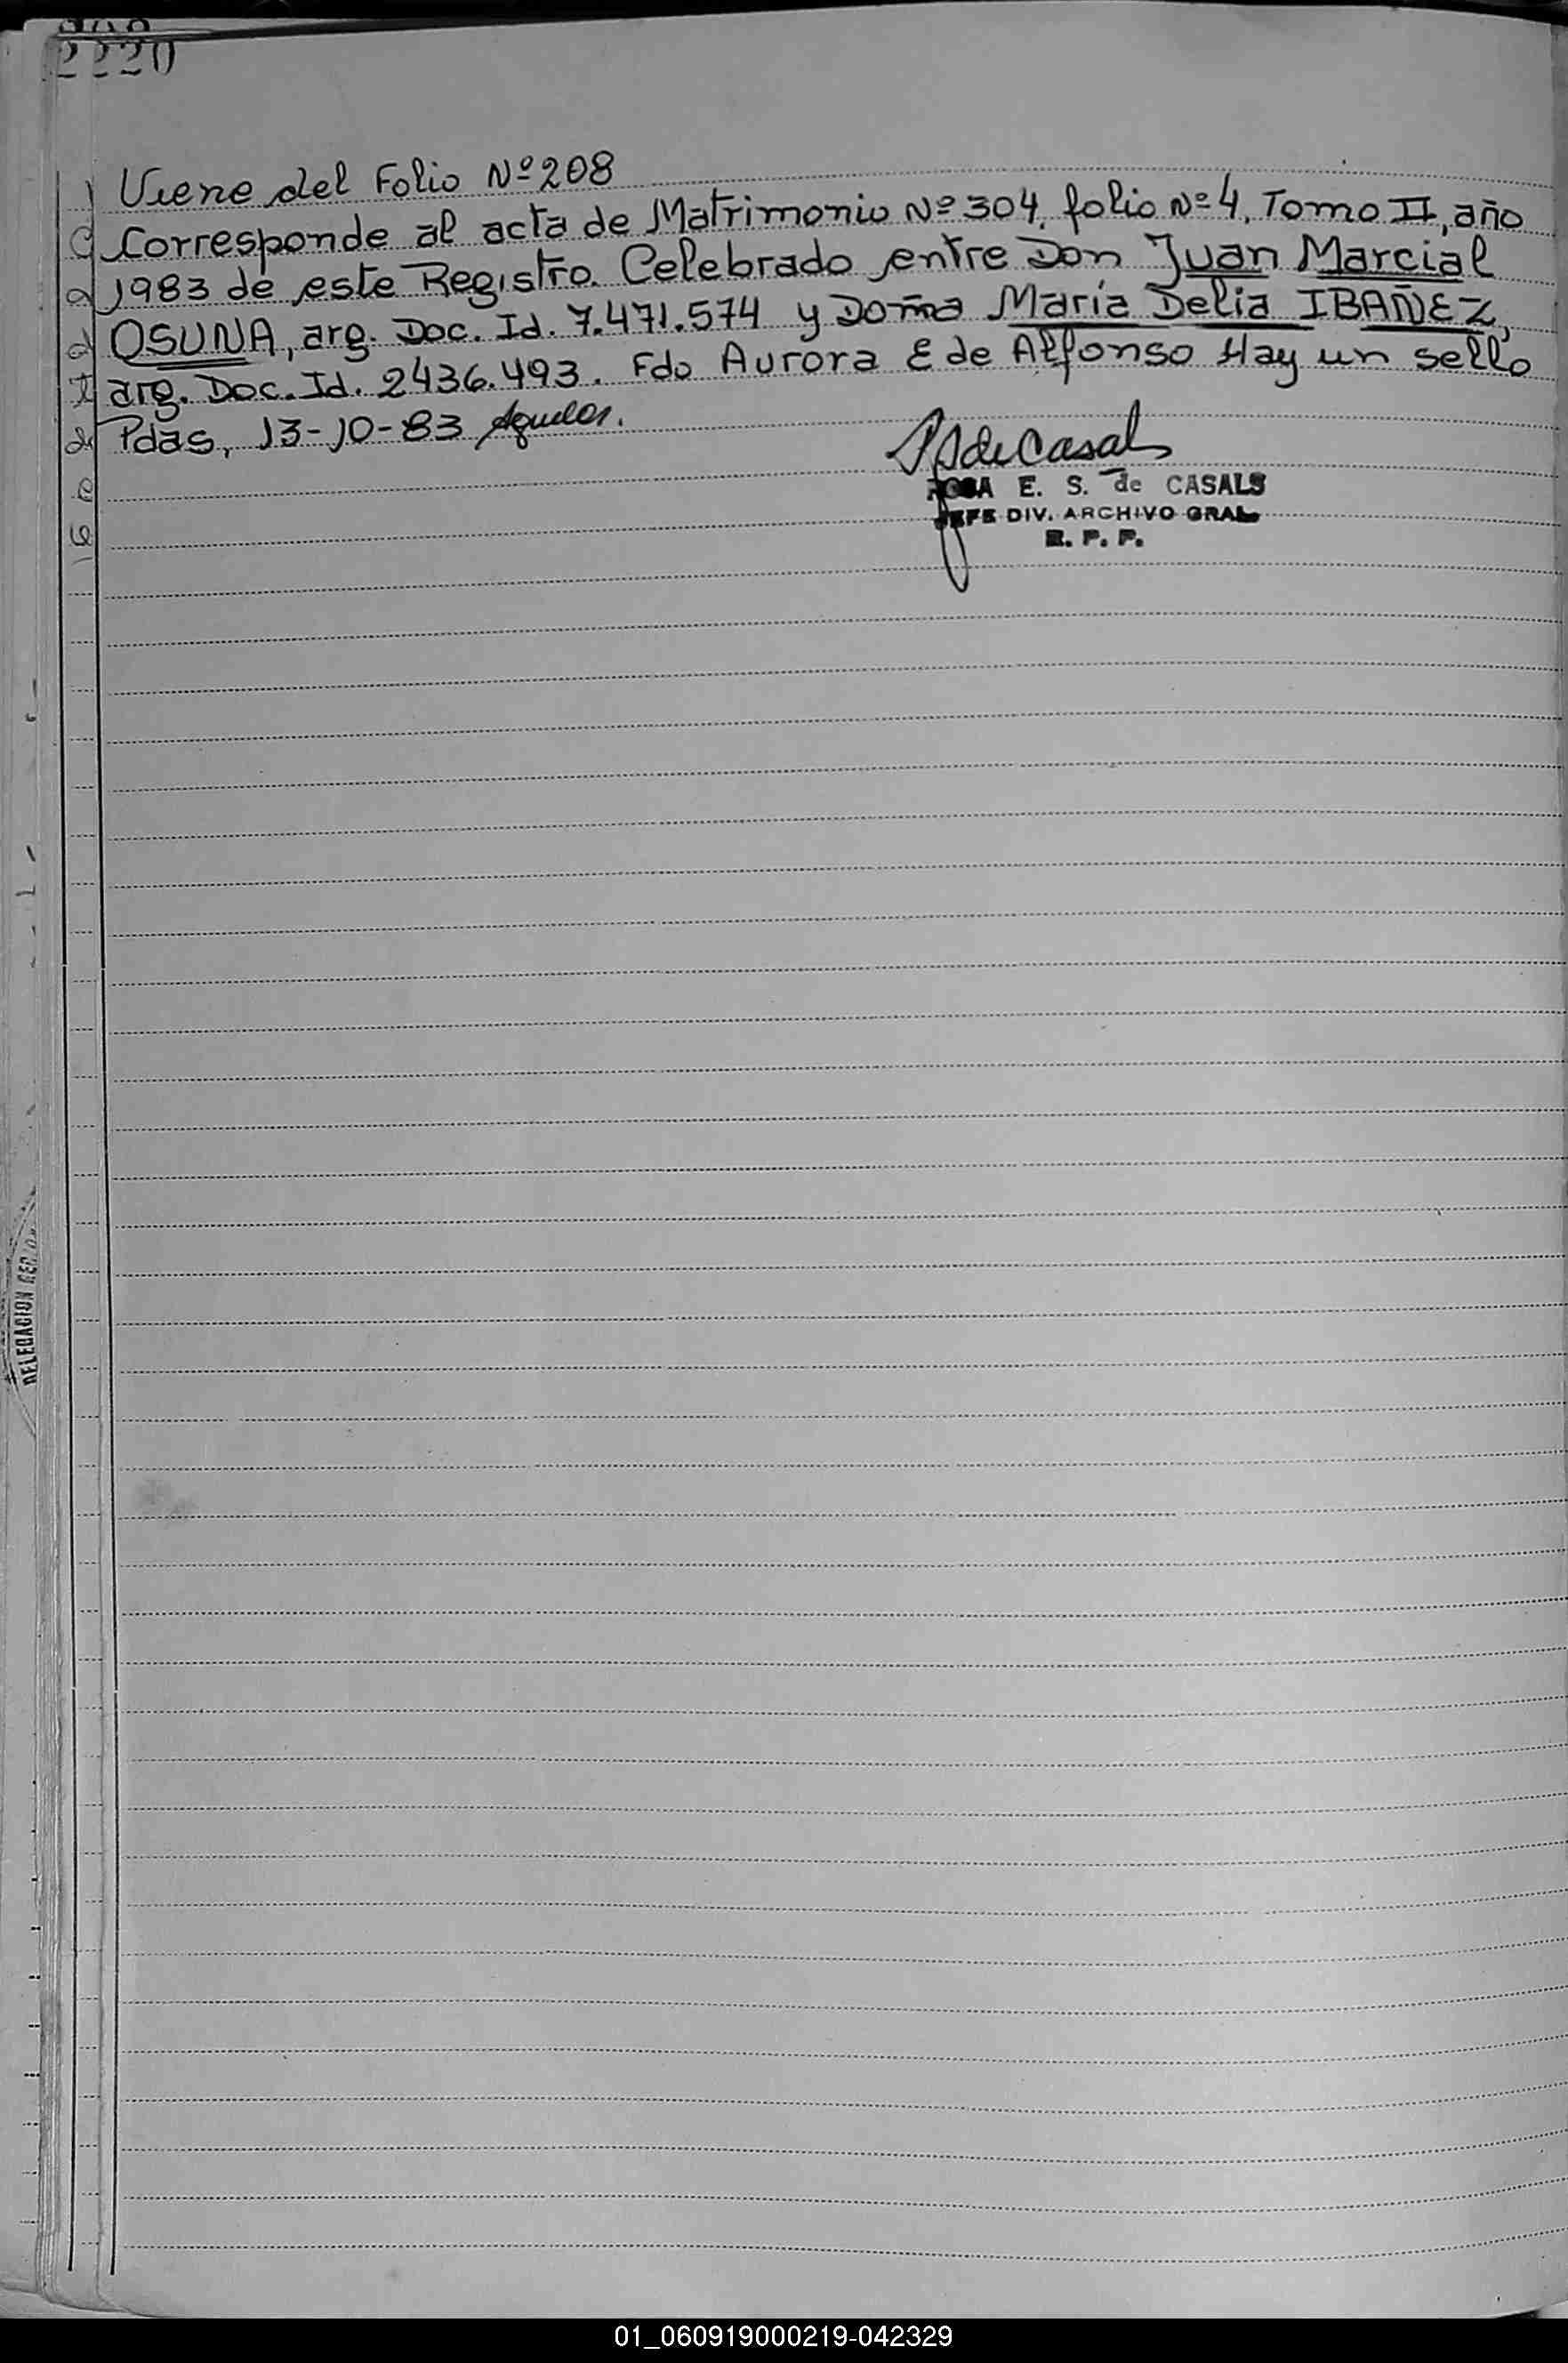 2220
Viene del Folio Nº 208
Corresponde al acta de Matrimonio Nº 304, folio Nº 4, Tomo II, año
1983 de este Registro. Celebrado entre Don Juan Marcial
OSUNA, arg. Doc. Id. 7.471.574 y Doña María Delia IBAÑEZ,
arg. Doc. Id. 2436.493. Fdo Aurora E de Alfonso Hay un sello
Pdas, 13-10-83
de Casals
ROSA E. S. de CASALS
JEFE DIV. ARCHIVO GRAL.
R. P. P.
DELEGACION
01_060919000219-042329